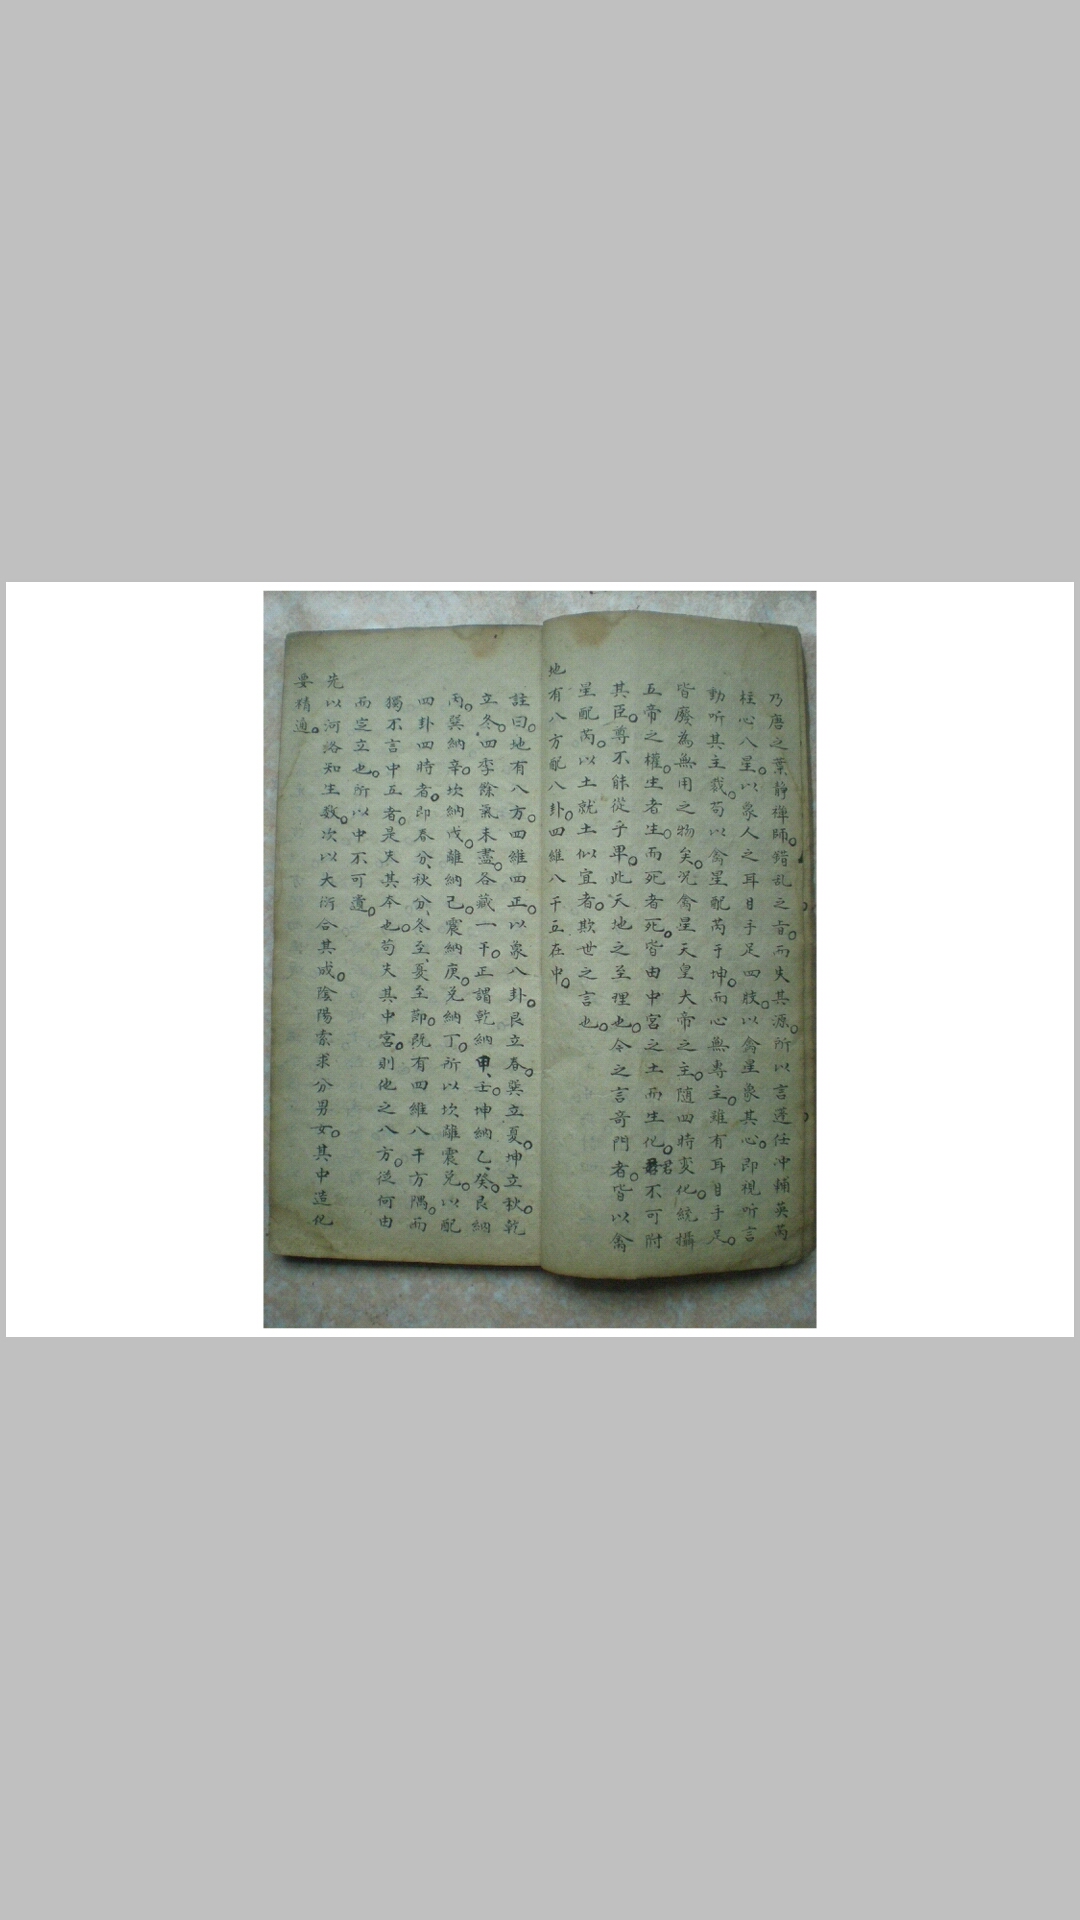 乃唐之葉靜禪師。錯乱之旨。而失其源。所以言蓬任冲輔英芮
柱心八星。以象人之耳目手足四肢。以禽星象其心。即視听言
動听其主裁。苟以禽星配芮于坤。而心無專主。雖有耳目手足。
皆廢為無用之物矣。况禽星天皇大帝之主。随四時変化。統攝
五帝之權。生者生。而死者死。皆由中宮之土而生化。君不可附
其臣。尊不能從乎卑。此天地之至理也。今之言奇門者。皆以禽
星配芮。以土就土似宜者。欺世之言也。
地有八方配八卦。四維八干五在中。
註曰。地有八方。四維四正。以象八卦。艮立春。巽立夏。坤立秋。乾
立冬。四季餘氣未盡。各藏一干。正謂乾納甲、壬。坤納乙、癸。艮納
丙。巽納辛。坎納戊。離納己。震納庚。兑納丁。所以坎離震兑。以配
四卦四時者。即春分、秋分、冬至、夏至節。既有四維八干方隅。而
獨不言中五者。是失其本也。苟失其中宮。則他之八方。從何由
而定立也。所以中不可遺。
先以河洛知生数。次以大衍合其成。陰陽索求分男女。其中造化
要精通。